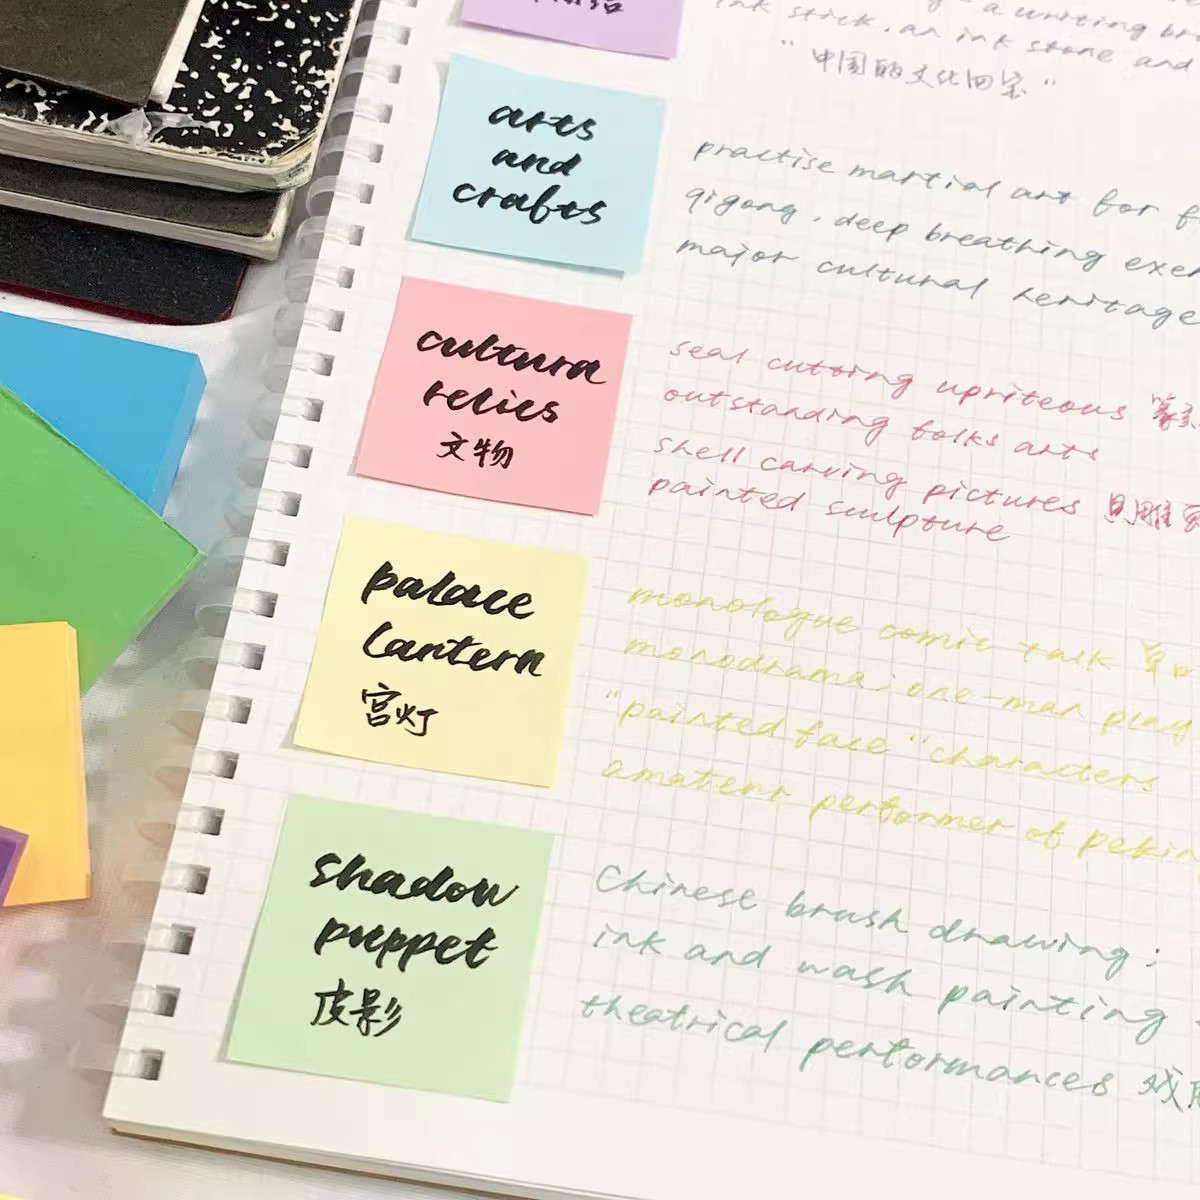 a writing
ink stick, an ink stone and
"中国的文化四宝"
arts
and
crafts
practise martial art for
qigong, deep breathing
major cultural heritage
cultura
relics
文物
seal cutting upriteous
outstanding folks arts
shell carving pictures 贝雕
painted sculpture
palace
lantern
宫灯
monologue comic talk 单口
monodrama; one-man play
"painted face" characters
amateur performer of
shadow
puppet
皮影
Chinese brush drawing:
ink and wash painting
theatrical performances